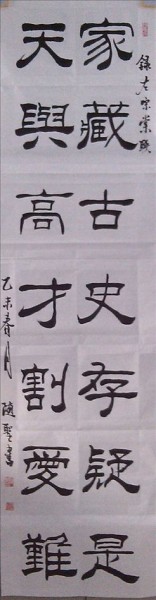 錄左宗棠聯
家藏古史存疑是
天與高才割愛難
乙未春月
隨聖書